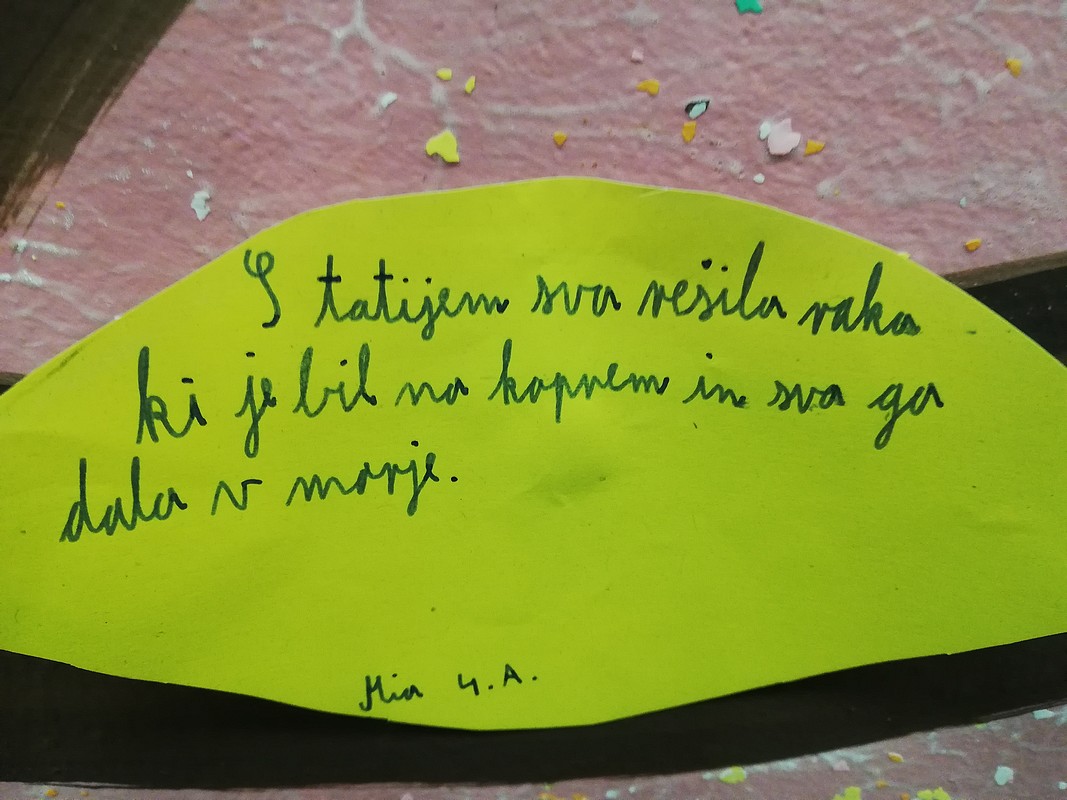 S tatijem sva rešila raka
ki je bil na kopnem in sva ga
dala v morje.
Mia 4. A.